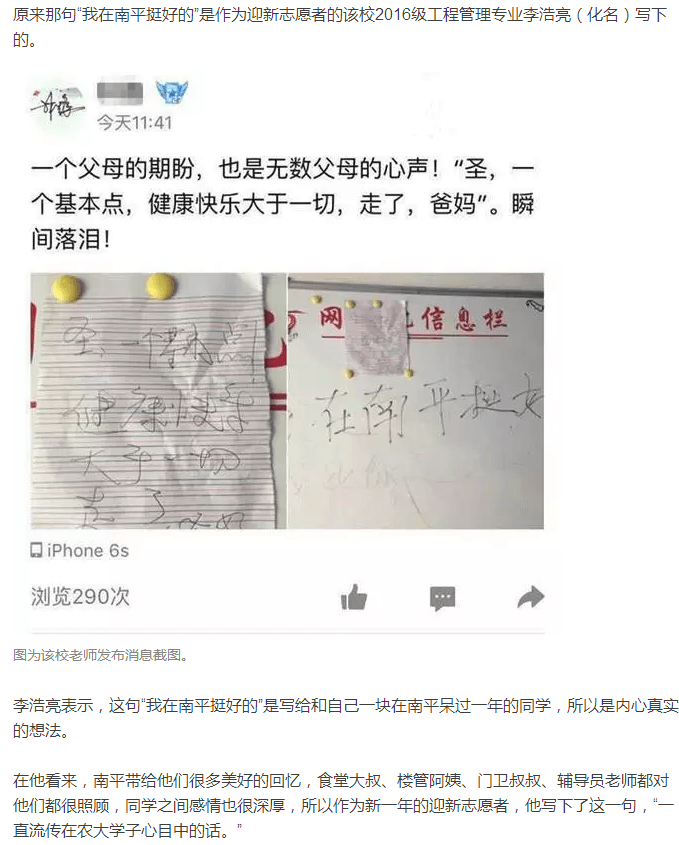 原来那句“我在南平挺好的”是作为迎新志愿者的该校2016级工程管理专业李浩亮（化名）写下
的。
今天11:41
一个父母的期盼，也是无数父母的心声！“圣，一
个基本点，健康快乐大于一切，走了，爸妈”。瞬
间落泪！
圣，一个基本点
健康快乐
大于一切
走了
网
信息栏
在南平挺好
iPhone 6s
浏览290次
图为该校老师发布消息截图。
李浩亮表示，这句“我在南平挺好的”是写给和自己一块在南平呆过一年的同学，所以是内心真实
的想法。
在他看来，南平带给他们很多美好的回忆，食堂大叔、楼管阿姨、门卫叔叔、辅导员老师都对
他们都很照顾，同学之间感情也很深厚，所以作为新一年的迎新志愿者，他写下了这一句，“一
直流传在农大学子心目中的话。”